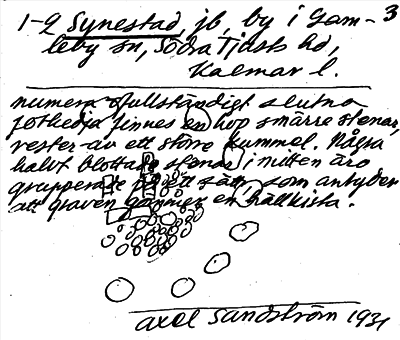 1-2 Synestad, jb, by i Gam- 3
leby sn, Södra Tjusts hd,
Kalmar l.
numera ofullständigt slutna
fotkedja finnes en hop smärre stenar,
rester av ett större kummel. Några
halvt blottade stenar i mitten äro
grupperade på ett sätt, som antyder
att graven gömmer en hällkista.
Axel Sandström 1931